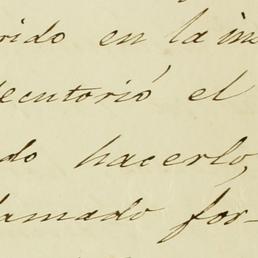 rido en la in
ecutorió el
do hacerlo,
lamado for-